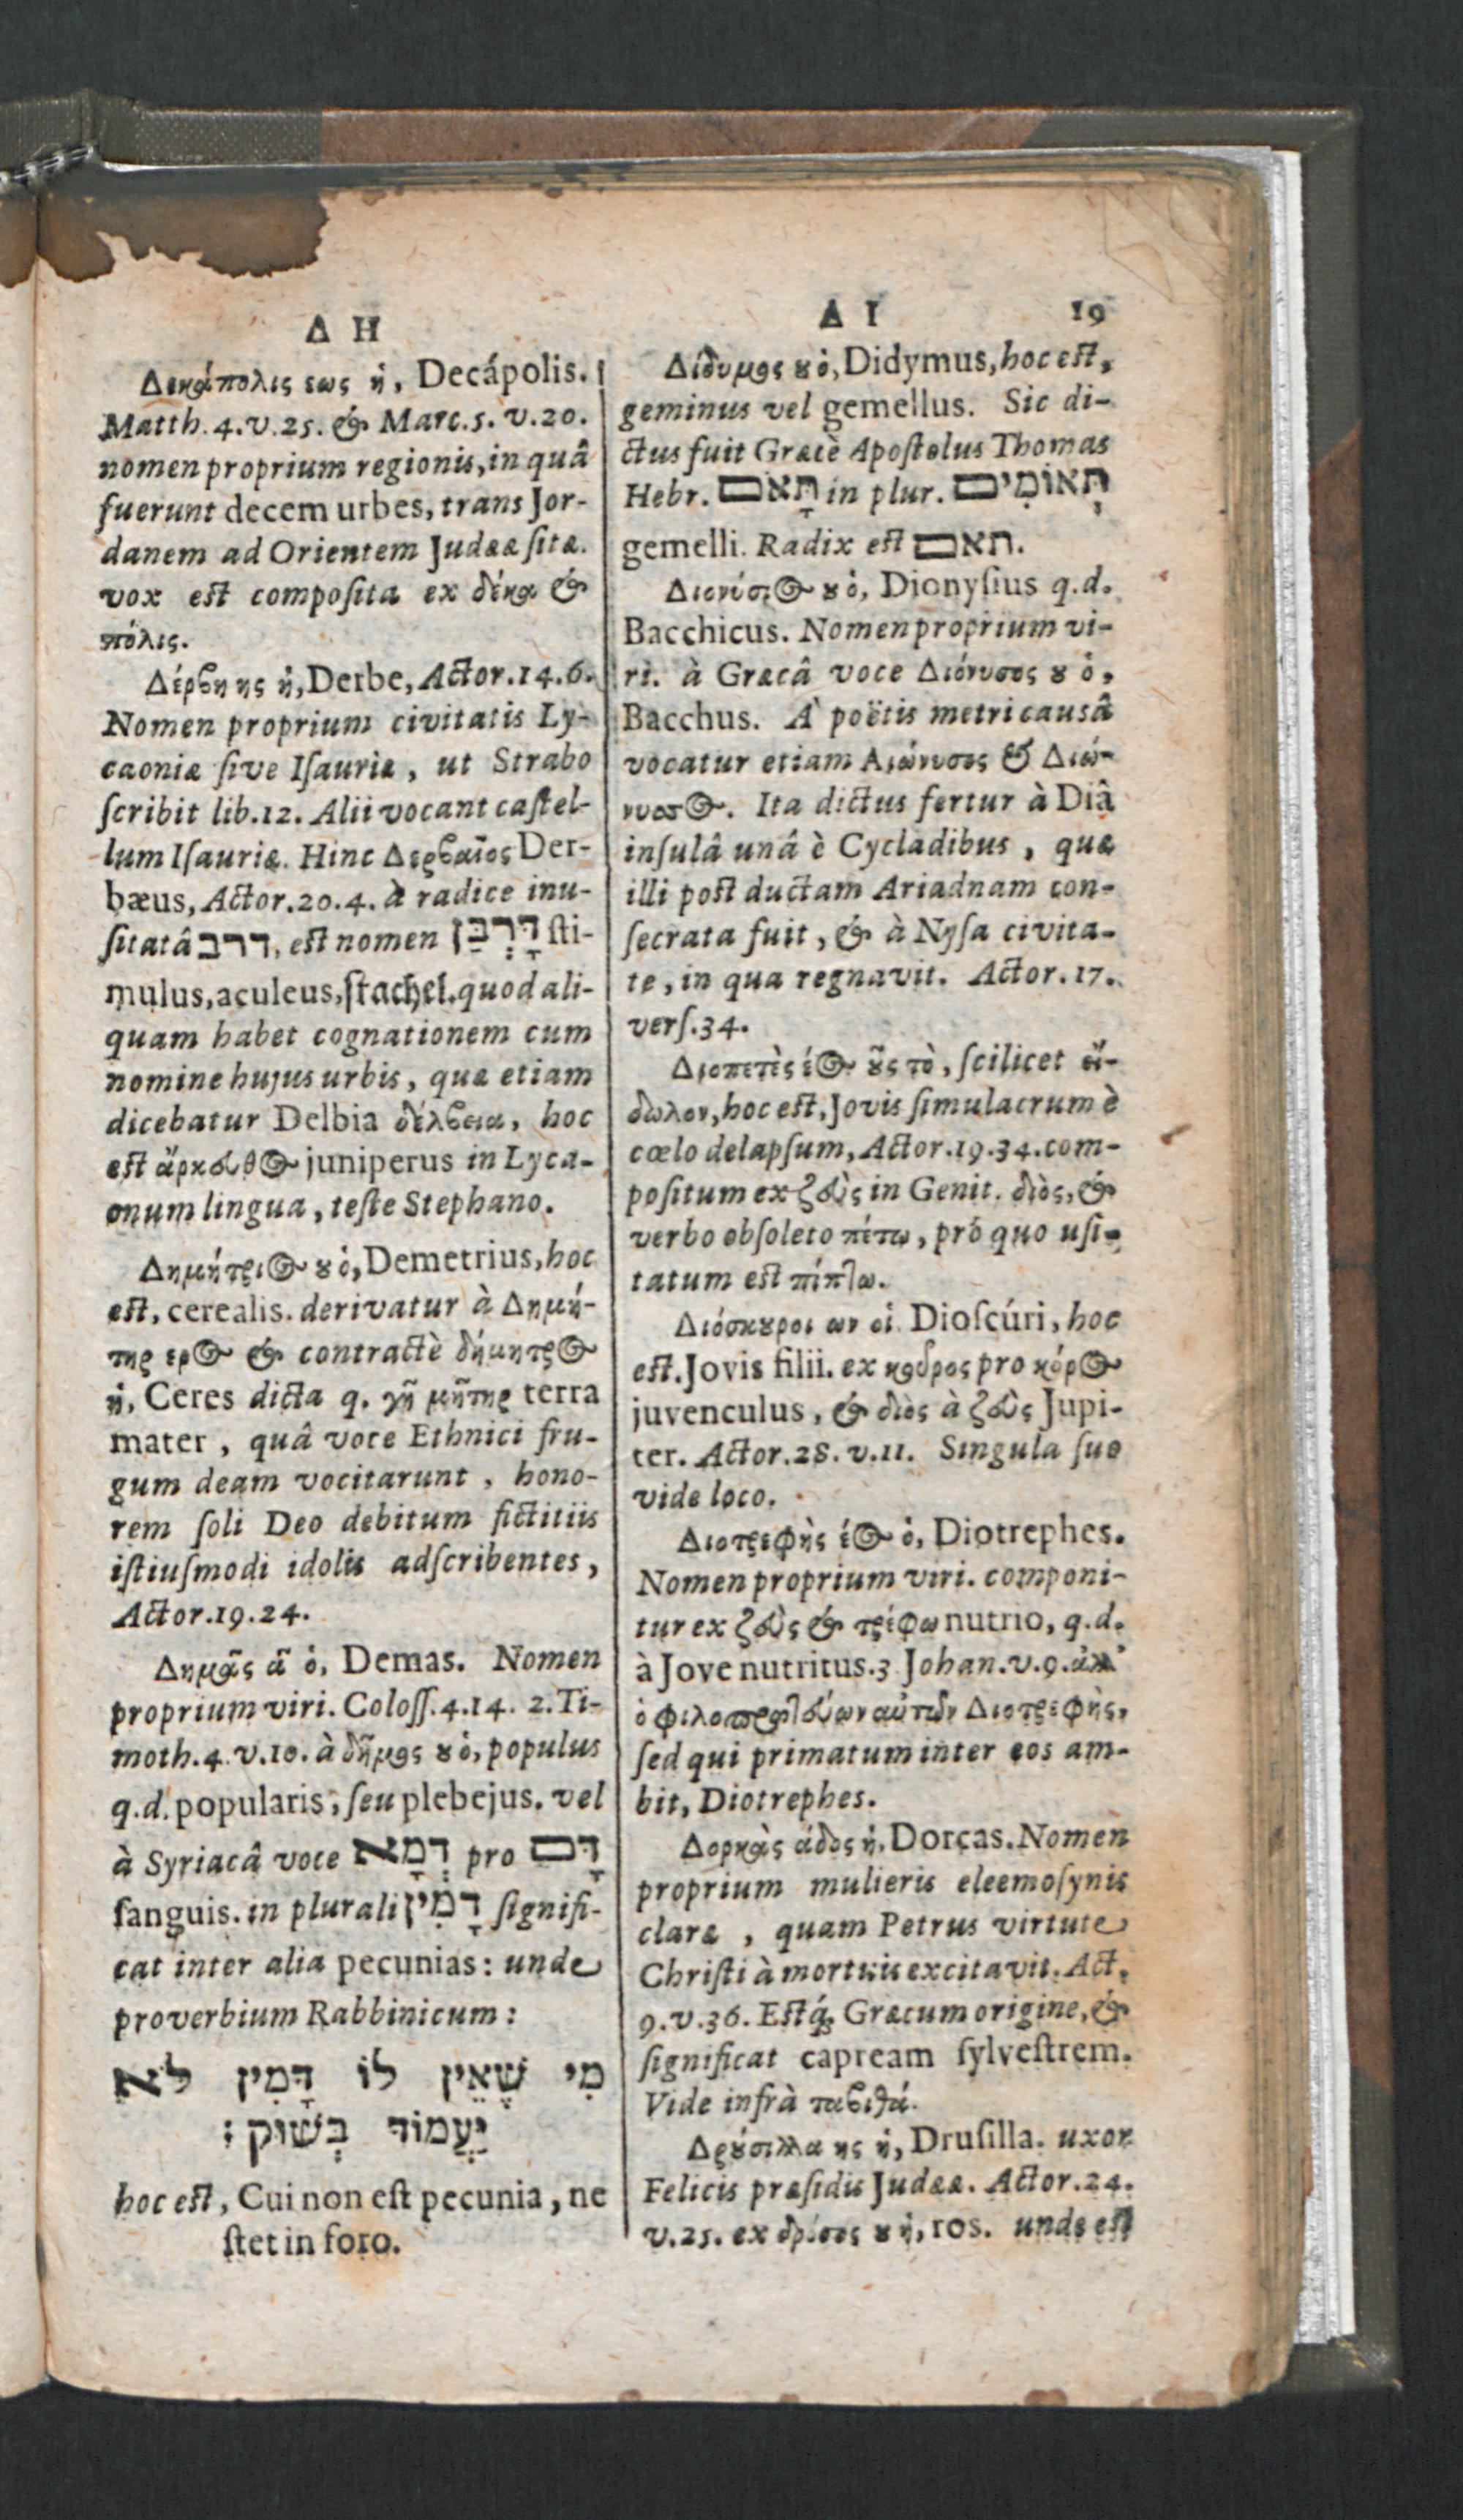 Δ Η
Δεκάπολις εως ἡ, Decápolis.
Matth. 4. v. 25. & Marc. 5. v. 20.
nomen proprium regionis, in quâ
fuerunt decem urbes, trans Jor-
danem ad Orientem Judææ sitæ.
vox est composita ex δέκα &
πόλις.
Δέρβη ης ἡ, Derbe, Actor. 14. 6.
Nomen proprium civitatis Ly-
caoniæ ſive Iſauriæ, ut Strabo
ſcribit lib. 12. Alii vocant caſtel-
lum Iſauriæ. Hinc Δερβαῖος Der-
bæus, Actor. 20. 4. à radice inu-
ſitatâ דרב, est nomen דָּרְבַן ſti-
mulus, aculeus, ſtachel. quod ali-
quam habet cognationem cum
nomine hujus urbis, quæ etiam
dicebatur Delbia δέλβεια, hoc
est ἄρκευθος juniperus in Lyca-
onum lingua, teſte Stephano.
Δημήτριος ου ὁ, Demetrius, hoc
est, cerealis. derivatur à Δημή-
τηρ ερος & contractè δήμητρος
ἡ, Ceres dicta q. γῆ μήτηρ terra
mater, quâ voce Ethnici fru-
gum deam vocitarunt, hono-
rem ſoli Deo debitum fictitiis
iſtiuſmodi idolis adſcribentes,
Actor. 19. 24.
Δημᾶς ᾶ ὁ, Demas. Nomen
proprium viri. Coloſſ. 4. 14. 2. Ti-
moth. 4. v. 10. à δῆμος ου ὁ, populus
q. d. popularis, ſeu plebejus. vel
à Syriacâ voce דְּמָא pro דָּם
ſanguis. in plurali דָּמִין ſignifi-
cat inter alia pecunias: unde
proverbium Rabbinicum:
מִי שֶׁאֵין לוֹ דָּמִין לֹא
יַעֲמוֹד בְּשׁוּק:
hoc est, Cui non eſt pecunia, ne
ſtet in foro.
Δ Ι 19
Δίδυμος ου ὁ, Didymus, hoc est,
geminus vel gemellus. Sic di-
ctus fuit Græcè Apoſtolus Thomas
Hebr. תָּאֹם in plur. תְּאוֹמִים
gemelli. Radix est תאם.
Διονύσιος ου ὁ, Dionyſius q. d.
Bacchicus. Nomen proprium vi-
ri. à Græcâ voce Διόνυσος ου ὁ,
Bacchus. A' poëtis metri causâ
vocatur etiam Διώνυσος & Διώ-
νυσος. Ita dictus fertur à Diâ
inſulâ unâ è Cycladibus, quæ
illi post ductam Ariadnam con-
ſecrata fuit, & à Nyſa civita-
te, in qua regnavit. Actor. 17.
verſ. 34.
Διοπετὲς έος οῦς τὸ, ſcilicet εἴ-
δωλον, hoc est, Jovis ſimulacrum è
cœlo delapſum, Actor. 19. 34. com-
poſitum ex ζεὺς in Genit. διὸς, &
verbo obſoleto πέτω, pro quo uſi-
tatum est πίπτω.
Διόσκουροι ων οἱ. Dioſcúri, hoc
est. Jovis filii. ex κοῦρος pro κόρος
juvenculus, & διὸς à ζεὺς Jupi-
ter. Actor. 28. v. 11. Singula ſuo
vide loco.
Διοτρεφὴς έος ὁ, Diotrephes.
Nomen proprium viri. componi-
tur ex ζεὺς & τρέφω nutrio, q. d.
à Jove nutritus. 3 Johan. v. 9. ἀλλ'
ὁ φιλοπρωτεύων αὐτῶν Διοτρεφὴς,
ſed qui primatum inter eos am-
bit, Diotrephes.
Δορκὰς άδος ἡ, Dorcas. Nomen
proprium mulieris eleemoſynis
claræ, quam Petrus virtute
Chriſti à mortuis excitavit. Act.
9. v. 36. Eſtq́; Græcum origine, &
ſignificat capream ſylveſtrem.
Vide infrà ταβιθά.
Δρούσιλλα ης ἡ, Druſilla. uxor
Felicis præſidis Judææ. Actor. 24.
v. 25. ex δρόσος ου ἡ, ros. unde est